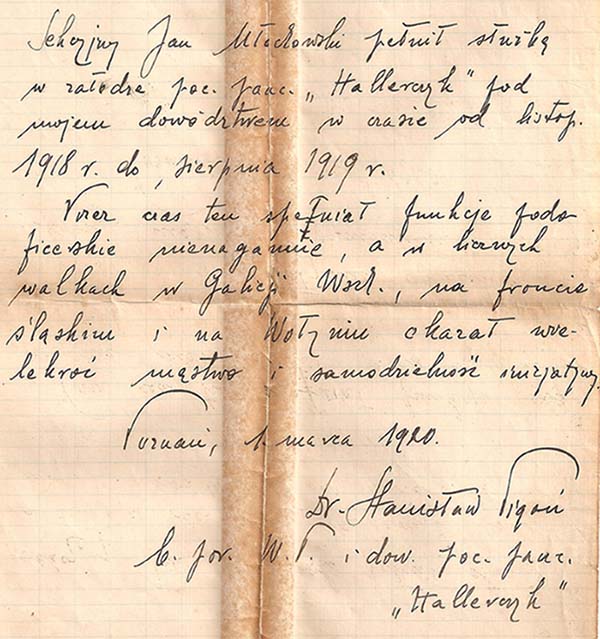 Sekcyjny Jan Młeckowski pełnił służbę
w załodze poc. panc. „Hallerczyk" pod
mojem dowództwem w czasie od listop.
1918 r. do sierpnia 1919 r.
Przez czas ten spełniał funkcje podo-
ficerskie nienagannie, a w licznych
walkach w Galicji Wsch., na froncie
śląskim i na Wołyniu okazał wie-
lekroć męstwo i samodzielność inicjatywy.
Poznań, 1 marca 1920.
Dr. Stanisław Pigoń
b. por. W. P. i dow. poc. panc.
„Hallerczyk"